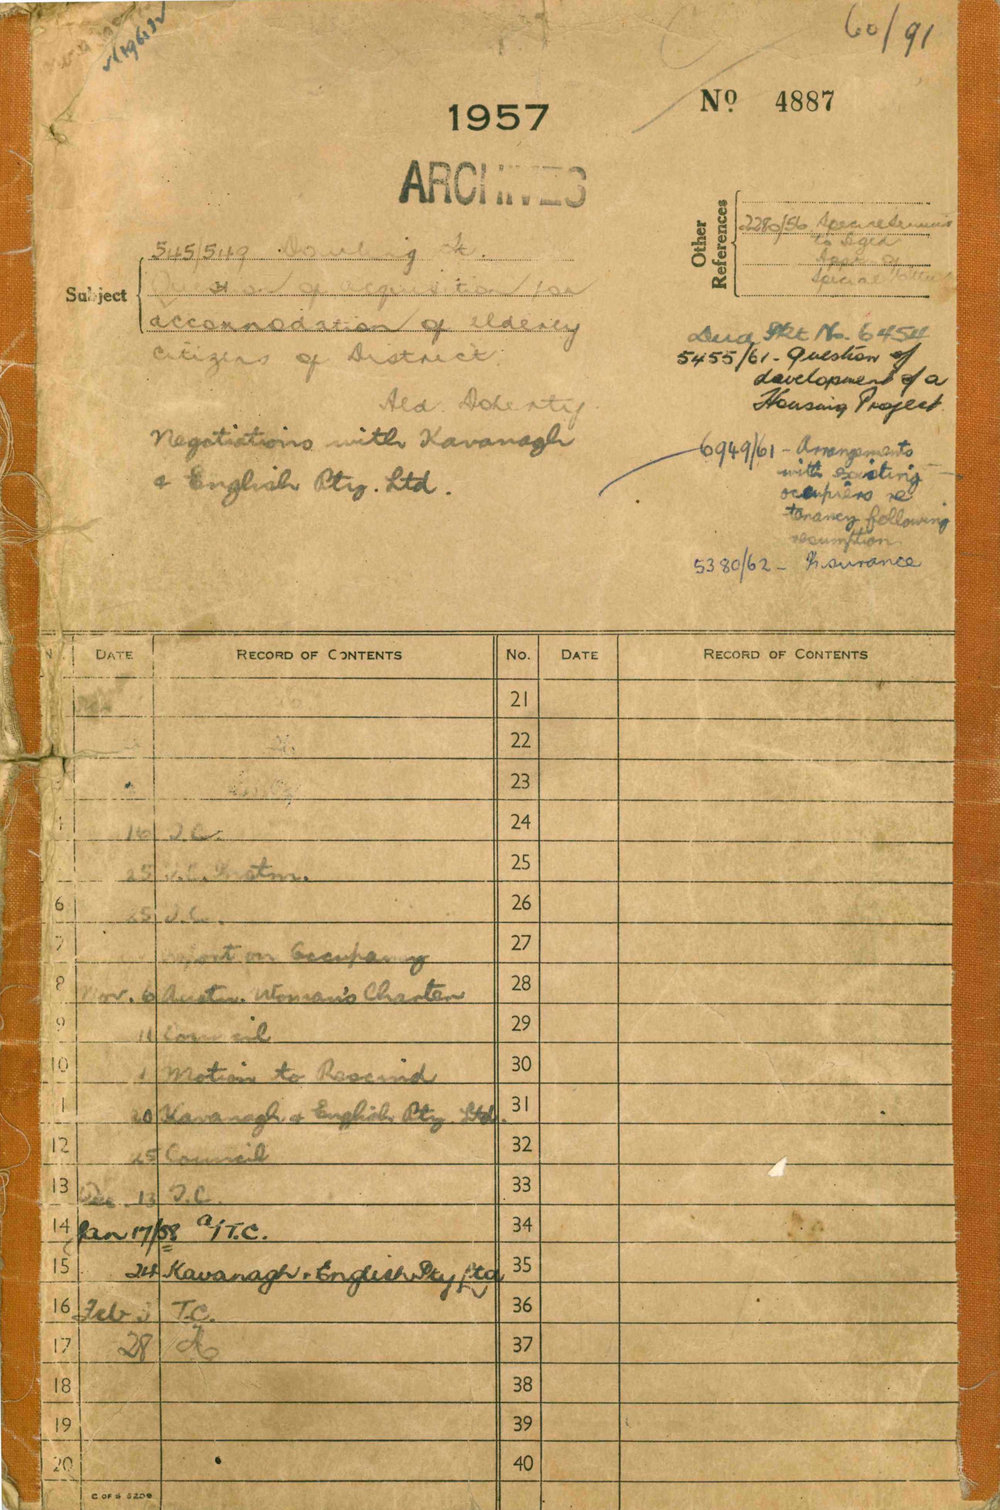 60/91
No 4887
1957
ARCHIVES
Other References
2280/56 Special
to Aged
Special
Subject
545/549 Dowling St.
Question of acquisition for
accommodation of elderly
citizens of District.
Ald. Doherty.
Negotiations with Kavanagh
& English Pty. Ltd.
Pkt No. 6454
5455/61 - Question of
development of a
Housing Project
6949/61 - Arrangements
with existing
occupiers re
tenancy following
resumption
5380/62 - Insurance
DATE RECORD OF CONTENTS No. DATE RECORD OF CONTENTS
21
22
23
16 T.C. 24
25 25
6 25 T.C. 26
7 Report on Occupancy 27
8 Nov. 6 Austn. Woman's Charter 28
9 11 Council 29
10 Motion to Rescind 30
11 20 Kavanagh & English Pty. Ltd. 31
12 25 Council 32
13 Dec. 13 T.C. 33
14 Jan 17/58 a/T.C. 34
15 24 Kavanagh & English Pty Ltd 35
16 Feb 3 T.C. 36
17 28 37
18 38
19 39
20 40
C OF S 5209